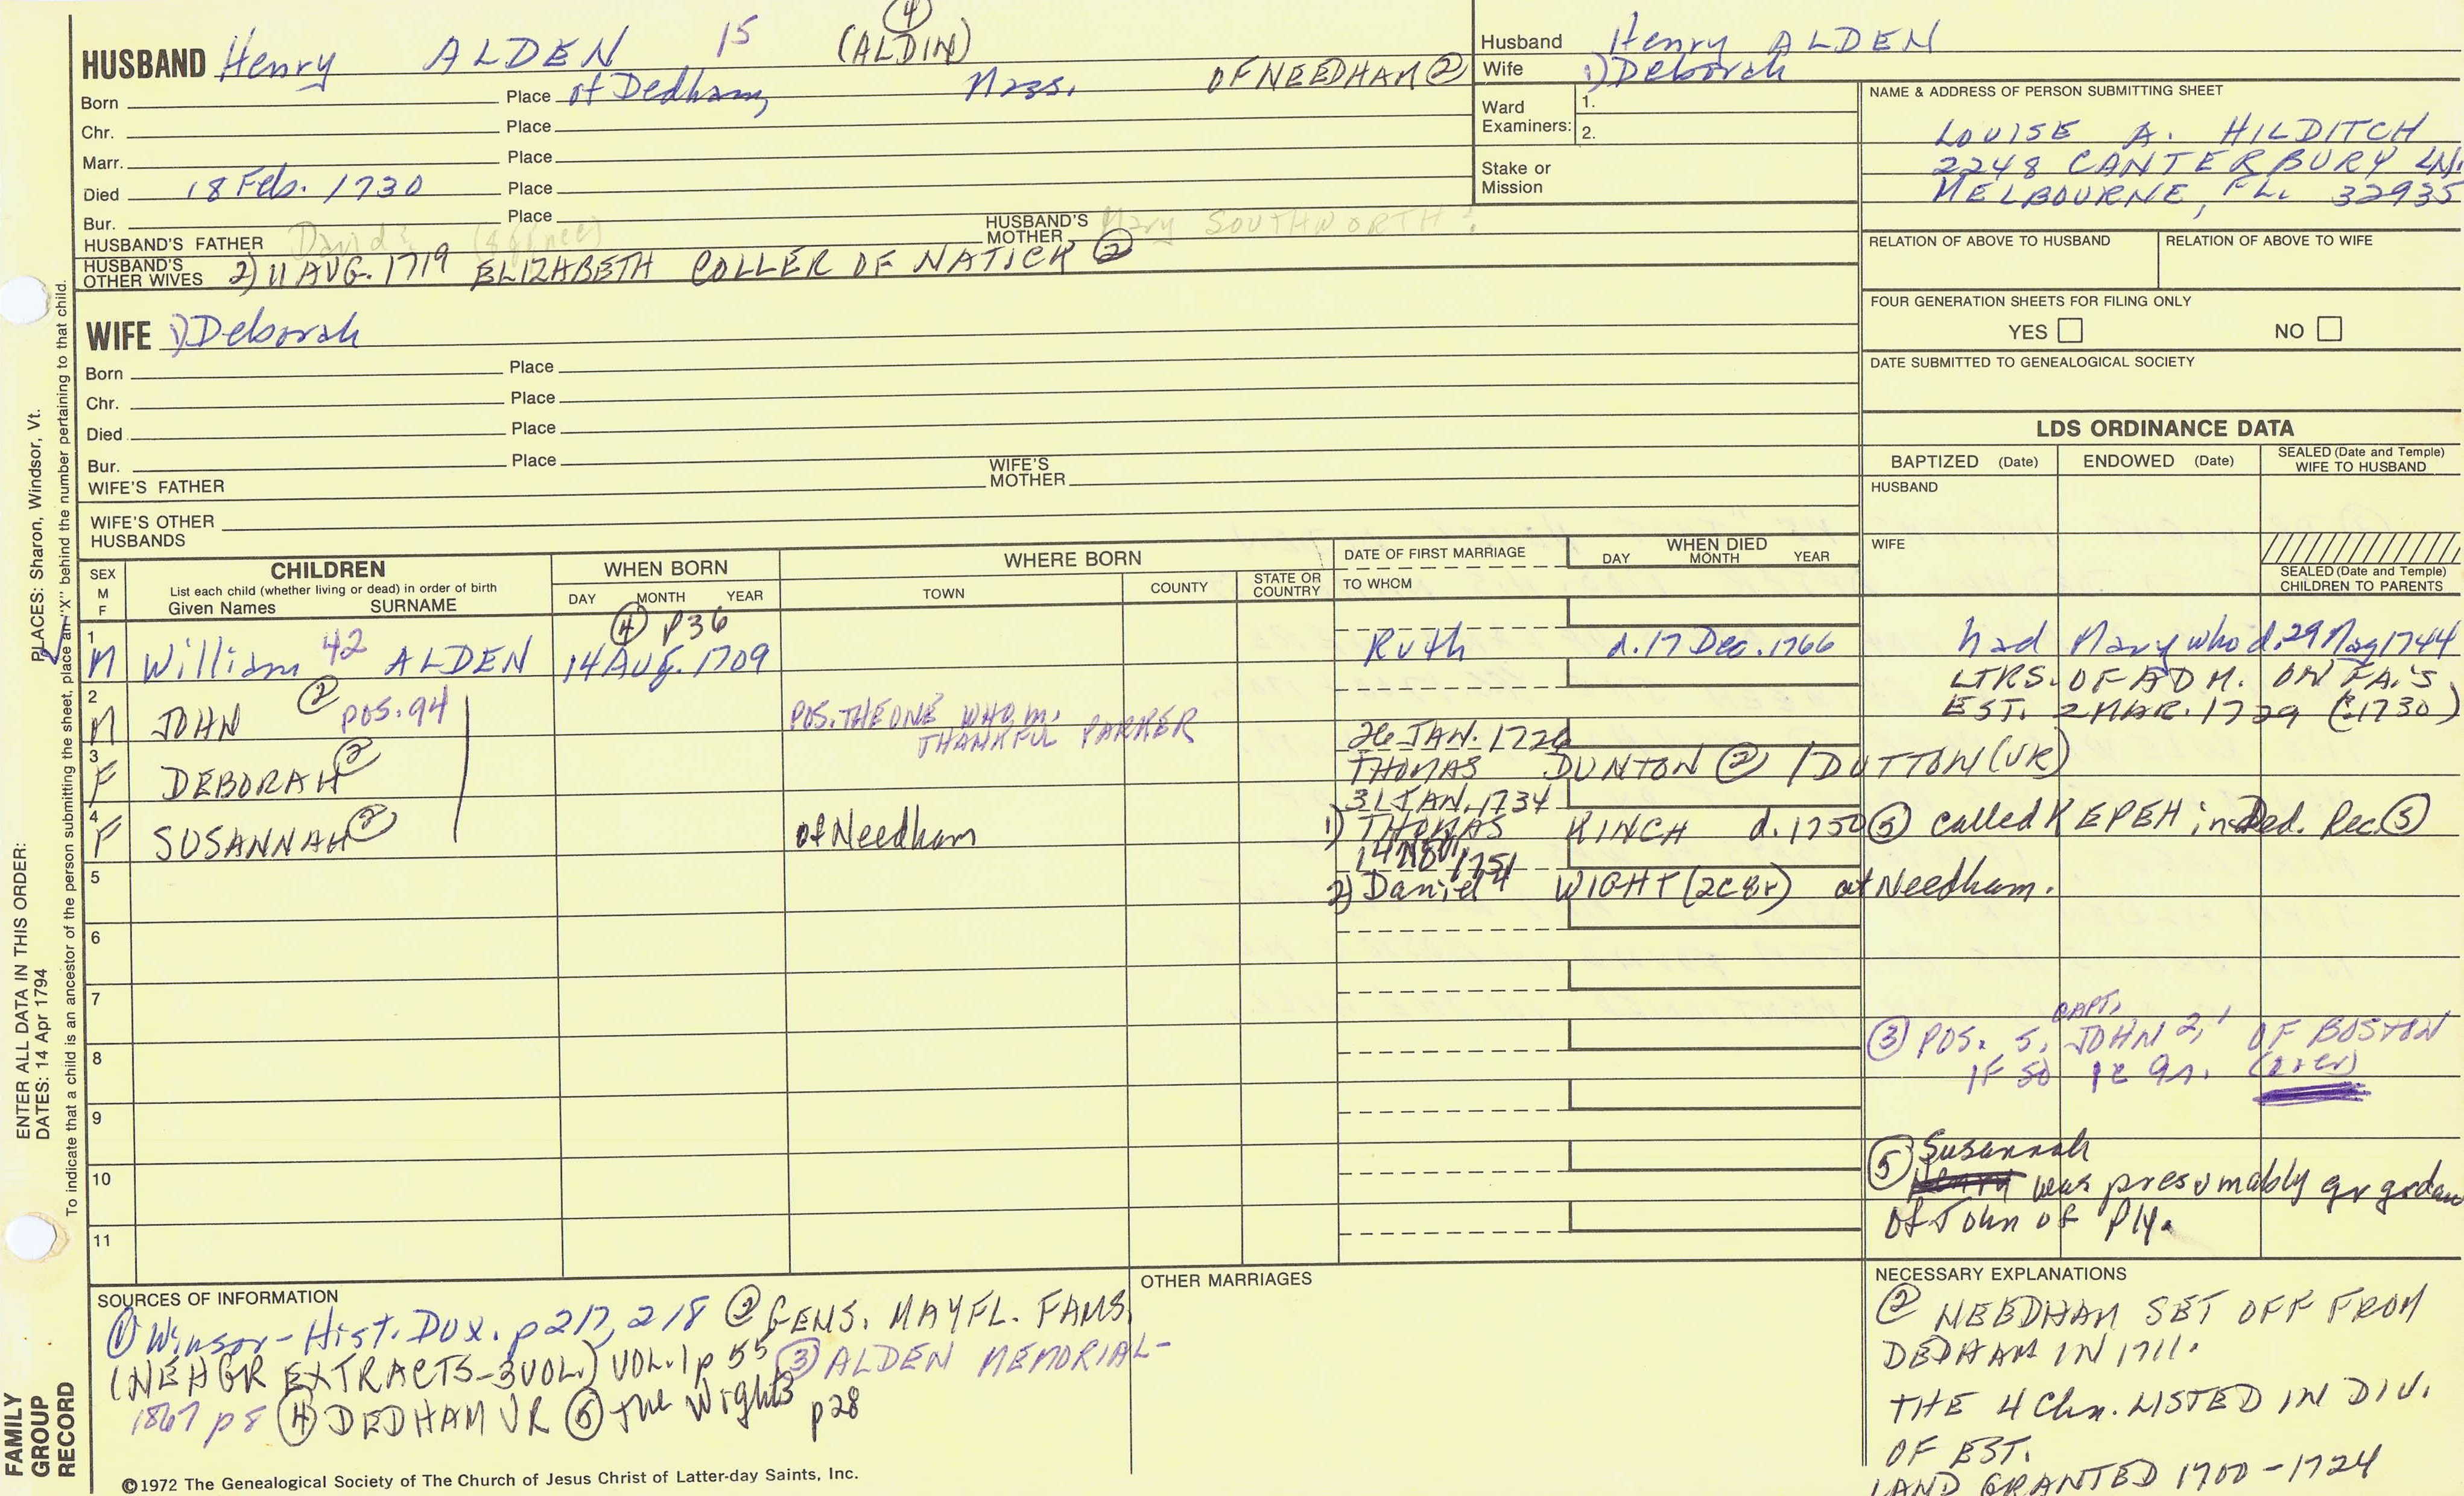 HUSBAND Henry ALDEN 15 (ALDIN) ④
Born Place of Dedham, Mass. OF NEEDHAM ②
Chr. Place
Marr. Place
Died 18 Feb. 1730 Place
Bur. Place
HUSBAND'S FATHER David? HUSBAND'S MOTHER Mary SOUTHWORTH?
HUSBAND'S OTHER WIVES 2) 11 AUG. 1719 ELIZABETH COLLER OF NATICK ②
WIFE 1) Deborah
Born Place
Chr. Place
Died Place
Bur. Place
WIFE'S FATHER WIFE'S MOTHER
WIFE'S OTHER HUSBANDS
Husband Henry ALDEN
Wife 1) Deborah
Ward Examiners: 1.
2.
Stake or Mission
NAME & ADDRESS OF PERSON SUBMITTING SHEET
LOUISE A. HILDITCH
2248 CANTERBURY LN.
MELBOURNE, FL. 32935
RELATION OF ABOVE TO HUSBAND RELATION OF ABOVE TO WIFE
FOUR GENERATION SHEETS FOR FILING ONLY
YES NO
DATE SUBMITTED TO GENEALOGICAL SOCIETY
LDS ORDINANCE DATA
BAPTIZED (Date) ENDOWED (Date) SEALED (Date and Temple) WIFE TO HUSBAND
HUSBAND
WIFE
SEALED (Date and Temple) CHILDREN TO PARENTS
SEX M F
CHILDREN
List each child (whether living or dead) in order of birth
Given Names SURNAME
WHEN BORN
DAY MONTH YEAR
WHERE BORN
TOWN COUNTY STATE OR COUNTRY
DATE OF FIRST MARRIAGE
TO WHOM
WHEN DIED
DAY MONTH YEAR
④ p36
1 M William 42 ALDEN 14 AUG. 1709 Ruth d. 17 Dec. 1766 had Mary who d. 29 May 1744
LTRS. OF ADM. ON FA'S
EST. 2 MAR. 1729 (:1730)
2 M JOHN ② POS. 94 POS. THE ONE WHO M. THANKFUL PARKER
26 JAN. 1726
3 F DEBORAH ② THOMAS DUNTON ② / DUTTON (VR)
31 JAN. 1734
4 F SUSANNAH ② of Needham 1) THOMAS KINCH d. 1750 ⑤ called KEPEH in Ded. Rec. ⑤
5 2) Daniel WIGHT (2C8r) at Needham.
6
7
8
9
10
11
③ POS. 5, CAPT. JOHN 2, 1 OF BOSTON
IF SO (over)
⑤ Susannah
was presumably gr grdau
of John of Ply.
SOURCES OF INFORMATION
① Winsor - Hist. Dux. p 217, 218 ② GENS. MAYFL. FAMS.
(NEHGR EXTRACTS - 3 VOL.) VOL. 1 p 55 ③ ALDEN MEMORIAL -
1867 p 8 ④ DEDHAM VR ⑤ The Wights p28
OTHER MARRIAGES
NECESSARY EXPLANATIONS
② NEEDHAM SET OFF FROM
DEDHAM IN 1711.
THE 4 Chn. LISTED IN DIV.
OF EST.
LAND GRANTED 1700 - 1724
©1972 The Genealogical Society of The Church of Jesus Christ of Latter-day Saints, Inc.
FAMILY GROUP RECORD
ENTER ALL DATA IN THIS ORDER:
DATES: 14 Apr 1794 PLACES: Sharon, Windsor, Vt.
To indicate that a child is an ancestor of the person submitting the sheet, place an "X" behind the number pertaining to that child.